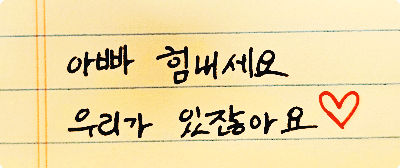 아빠 힘내세요
우리가 있잖아요♡